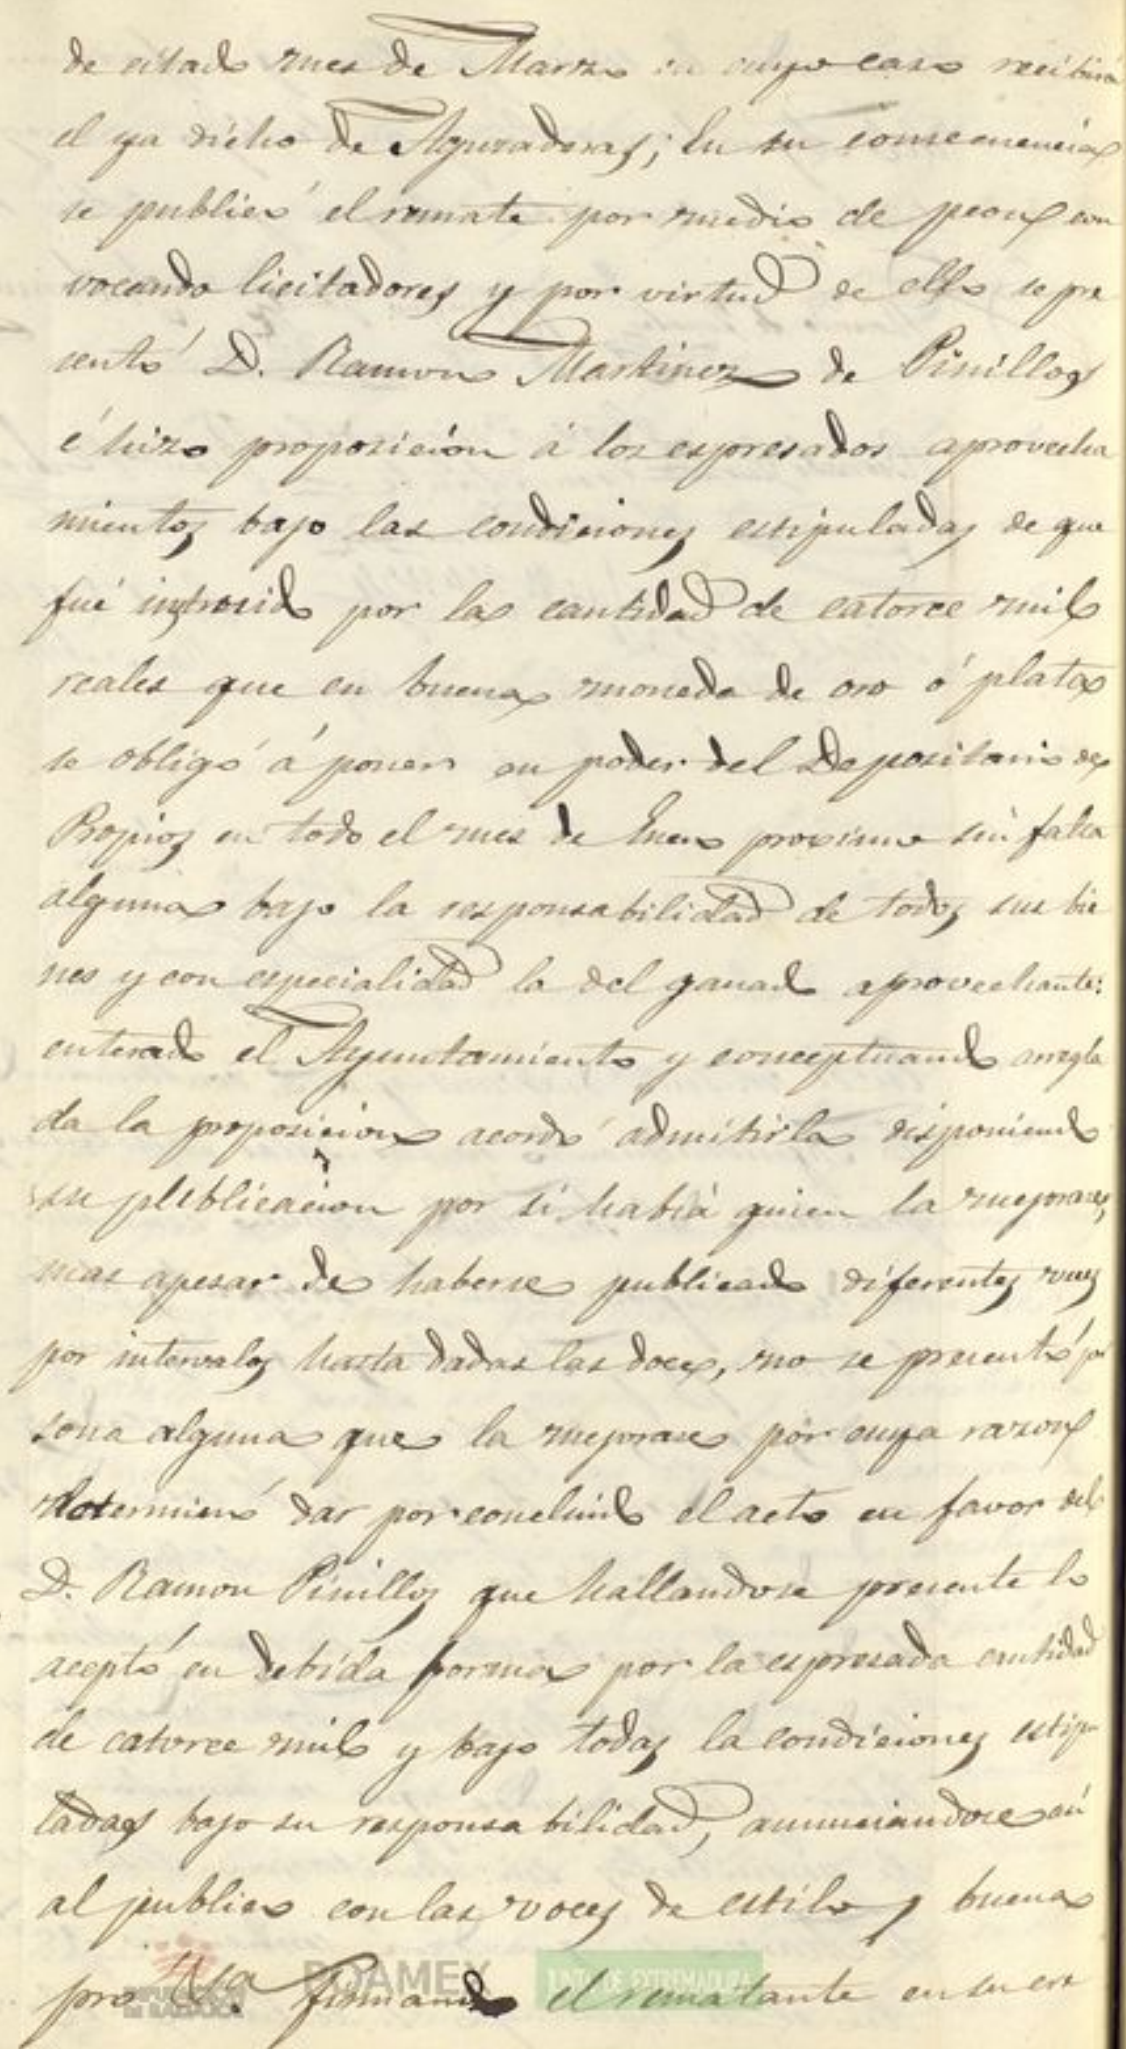 de citado mes de Marzo en cuyo caso recibirá
el ya dicho de Aguzaderas; En su consecuencia
se publicó el remate por medio de peon con
vocando licitadores y por virtud de ello se pre
sentó D. Ramon Martinez de Pinillos
é hizo proposición á los espresados aprovecha
mientos bajo las condiciones estipuladas de que
fué por la cantidad de catorce mil
reales que en buena moneda de oro ó plata
se obligó á poner en poder del Depositario de
Propios en todo el mes de Enero proximo sin falta
alguna bajo la responsabilidad de todos sus bie
nes y con especialidad la del ganado aprovechante:
enterado el Ayuntamiento y conceptuando arregla
da la proposicion acordó admitirla disponiendo
su publicacion por si habia quien la mejorase,
mas apesar de haberse publicado diferentes veces
por intervalos hasta dadas las doce, no se presentó per
sona alguna que la mejorase por cuya razon
determinó dar por concluido el acto en favor del
D. Ramon Pinillos que hallandose presente lo
aceptó en debida forma por la espresada cantidad
de catorce mil y bajo todas la condiciones estipu
ladas bajo su responsabilidad, anunciandose así
al publico con las voces de estilo y buena
pro firmando el rematante en su cre
BOAMEX
JUNTA DE EXTREMADURA
DIPUTACIÓN
DE BADAJOZ